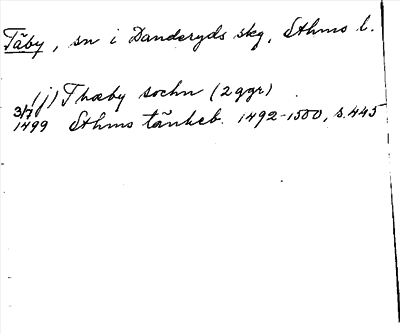 Täby, sn i Danderyds skg, Sthms l.
(j) Thæby sochn (2 ggr)
3/7 1499 Sthms tänkeb. 1492-1500, s. 445